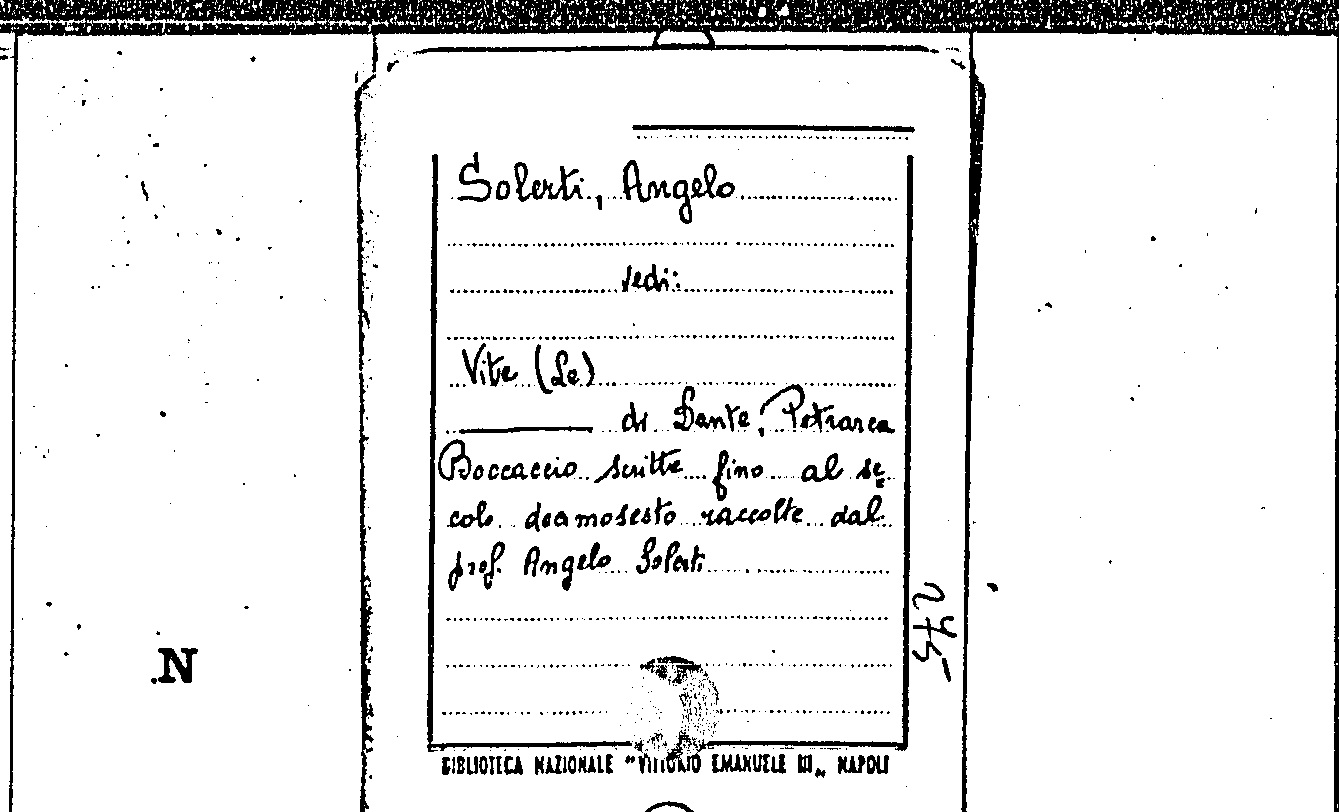 Solerti, Angelo
vedi:
Vite (Le)
di Dante, Petrarca
Boccaccio scritte fino al se
colo decimosesto raccolte dal
prof. Angelo Solerti
275
N
BIBLIOTECA NAZIONALE "VITTORIO EMANUELE III„ NAPOLI